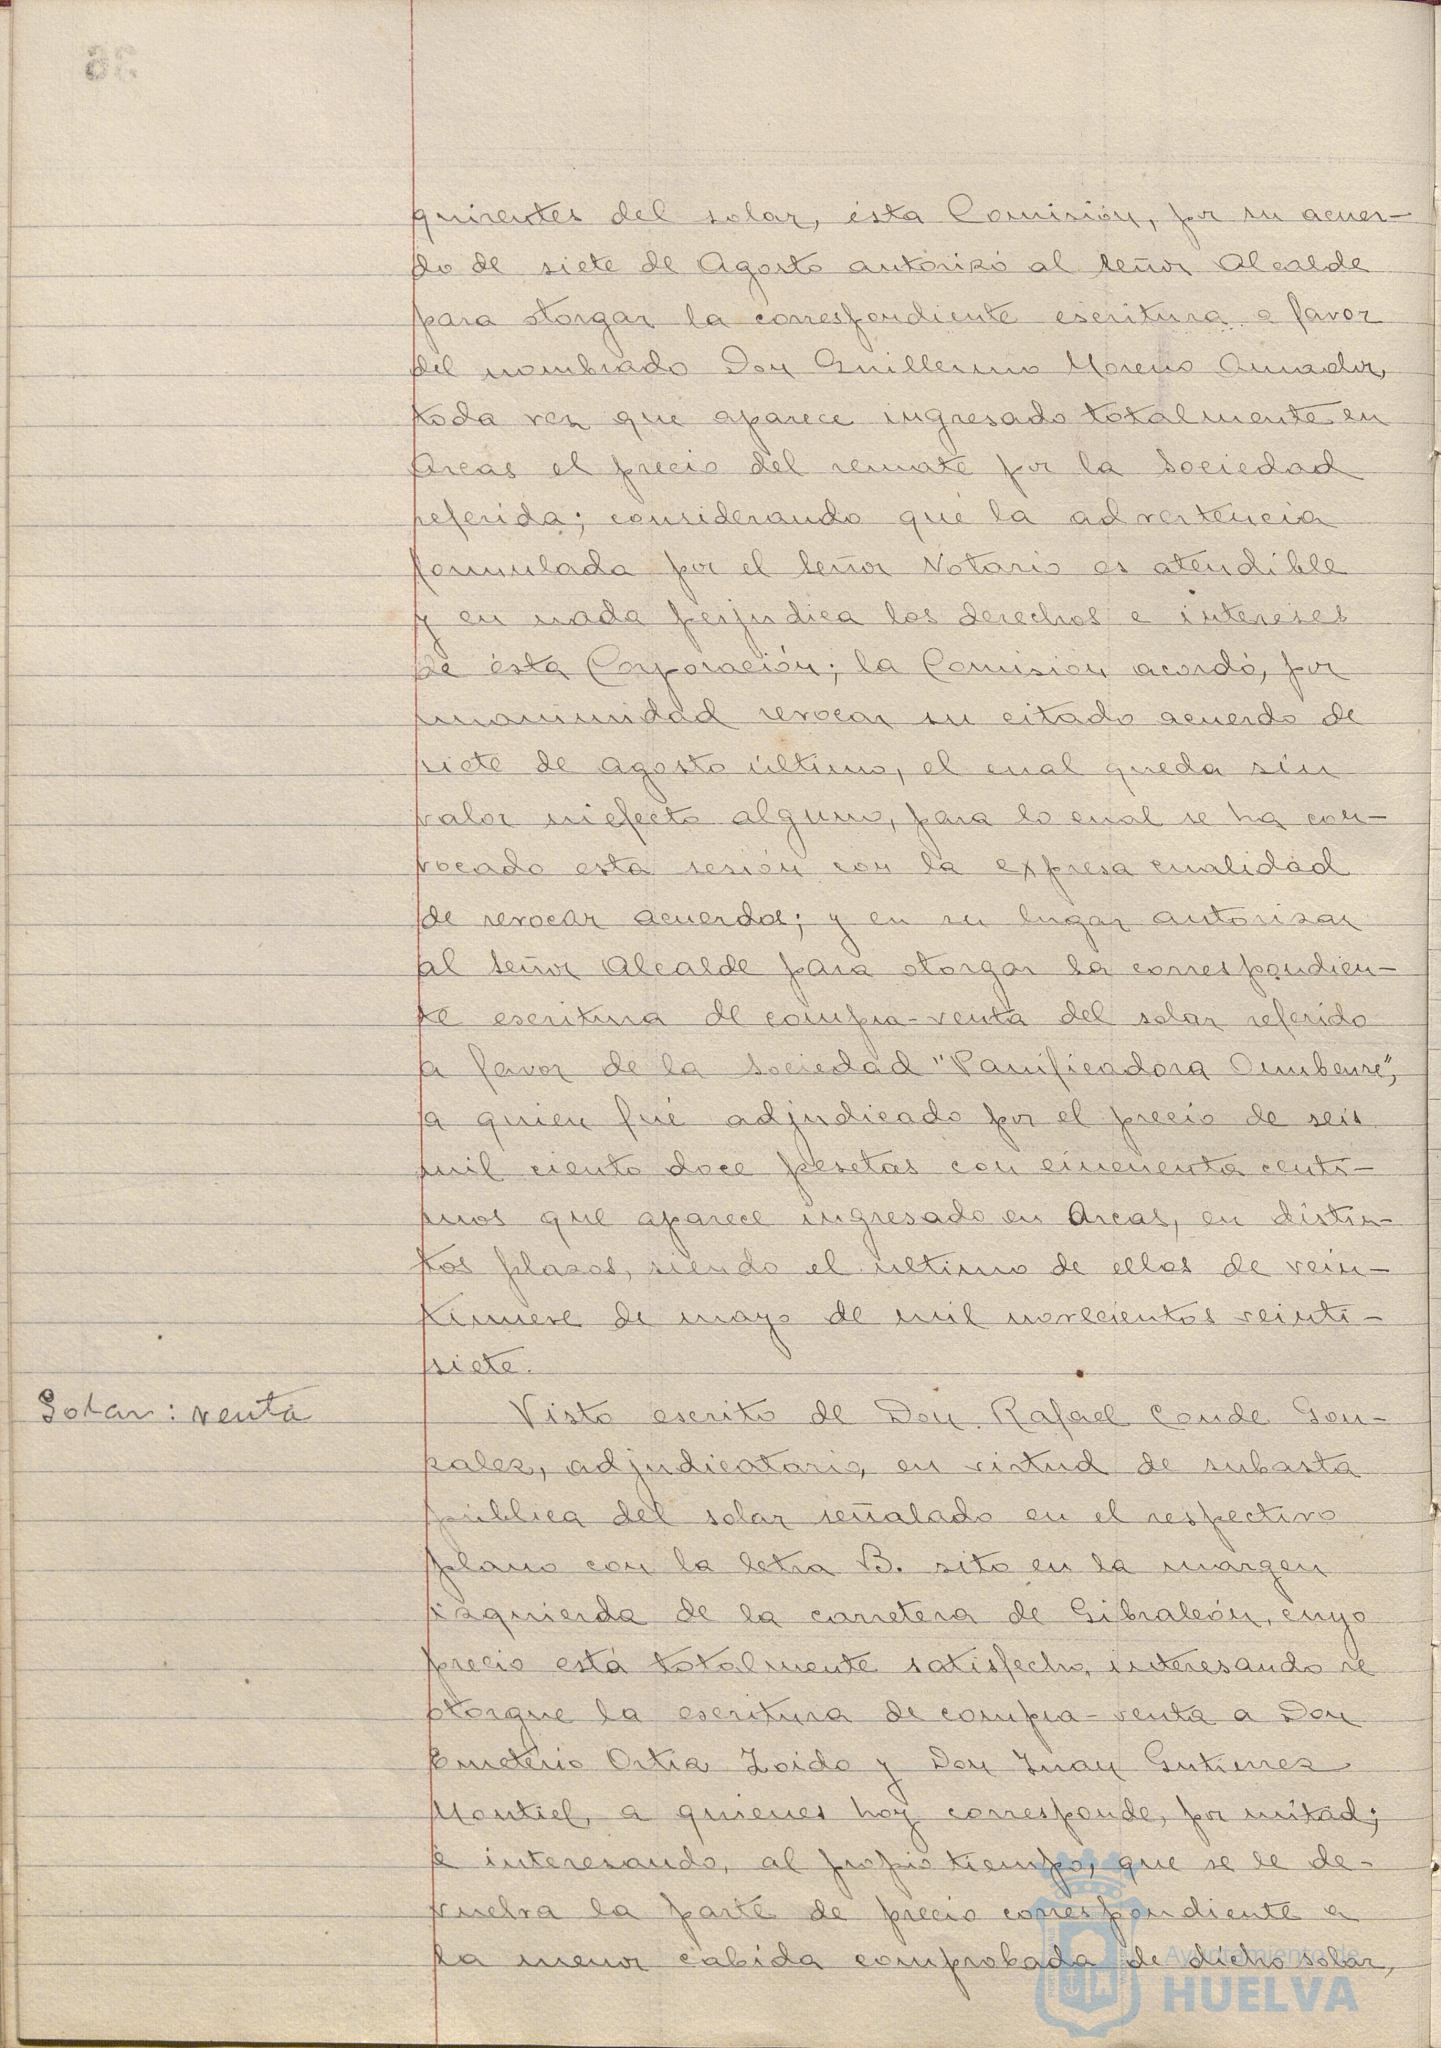 36
quirentes del solar, ésta Comisión, por su acuer-
do de siete de Agosto autorizó al señor Alcalde
para otorgar la correspondiente escritura a favor
del nombrado Don Guillermo Moreno Amador,
toda vez que aparece ingresado totalmente en
Arcas el precio del remate por la Sociedad
referida; considerando que la advertencia
formulada por el señor Notario es atendible
y en nada perjudica los derechos e intereses
de ésta Corporación; la Comisión acordó, por
unanimidad revocar su citado acuerdo de
siete de agosto último, el cual queda sin
valor ni efecto alguno, para lo cual se ha con-
vocado esta sesión con la expresa cualidad
de revocar acuerdos; y en su lugar autorizar
al señor Alcalde para otorgar la correspondien-
te escritura de compra-venta del solar referido
a favor de la Sociedad "Panificadora Onubense",
a quien fué adjudicado por el precio de seis
mil ciento doce pesetas con cincuenta centi-
mos que aparece ingresado en Arcas, en distin-
tos plazos, siendo el ultimo de ellos de vein-
tinueve de mayo de mil novecientos veinti-
siete.
Solar: venta
Visto escrito de Don Rafael Conde Gon-
zalez, adjudicatario, en virtud de subasta
pública del solar señalado en el respectivo
plano con la letra B. sito en la margen
izquierda de la carretera de Gibraleón, cuyo
precio está totalmente satisfecho, interesando se
otorgue la escritura de compra-venta a Don
Emeterio Ortiz Zoido y Don Juan Gutierrez
Montiel, a quienes hoy corresponde, por mitad;
é interesando, al propio tiempo, que se le de-
vuelva la parte de precio correspondiente a
la menor cabida comprobada de dicho solar,
Ayuntamiento de
HUELVA